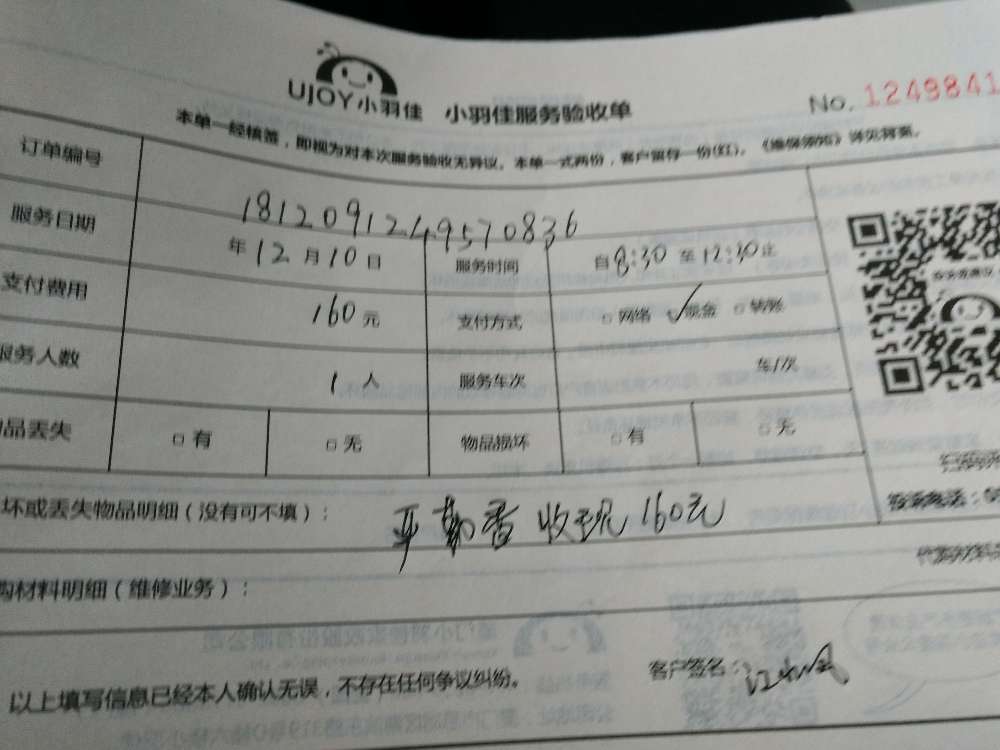 UJOY小羽佳 小羽佳服务验收单 No. 1249841
本单一经核签，即视为对本次服务验收无异议。本单一式两份，客户留存一份(红)。《维保须知》详见背面。
订单编号 1812091249570836
服务日期 年12月10日 服务时间 自8:30至12:30止
支付费用 160元 支付方式 □网络 □现金 □转账
服务人数 1人 服务车次 车/次
品丢失 □有 □无 物品损坏 □有 □无
坏或丢失物品明细（没有可不填）： 收现160元
购材料明细（维修业务）：
以上填写信息已经本人确认无误，不存在任何争议纠纷。 客户签名：